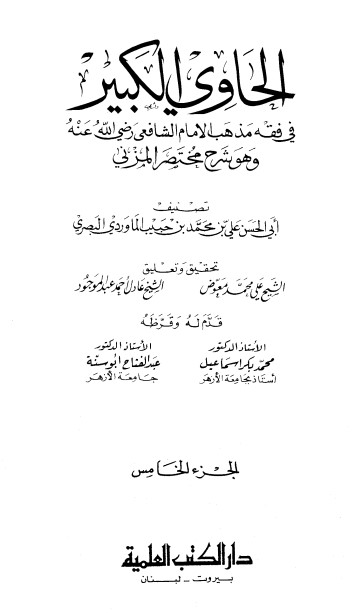 الحاوي الكبير
في فقه مذهب الإمام الشافعي رضي الله عنه
وهو شرح مختصر المزني
تصنيف
أبي الحسن علي بن محمد بن حبيب الماوردي البصري
تحقيق وتعليق
الشيخ علي محمد معوض الشيخ عادل أحمد عبد الموجود
قدم له وقرظه
الأستاذ الدكتور الأستاذ الدكتور
محمد بكر اسماعيل عبد الفتاح ابو سنة
أستاذ بجامعة الأزهر جامعة الأزهر
الجزء الخامس
دار الكتب العلمية
بيروت - لبنان